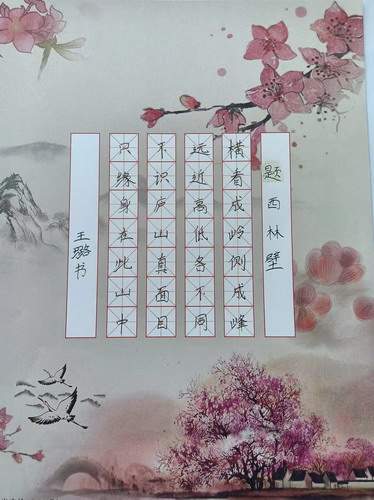 题西林壁
横看成岭侧成峰
远近高低各不同
不识庐山真面目
只缘身在此山中
王璐书